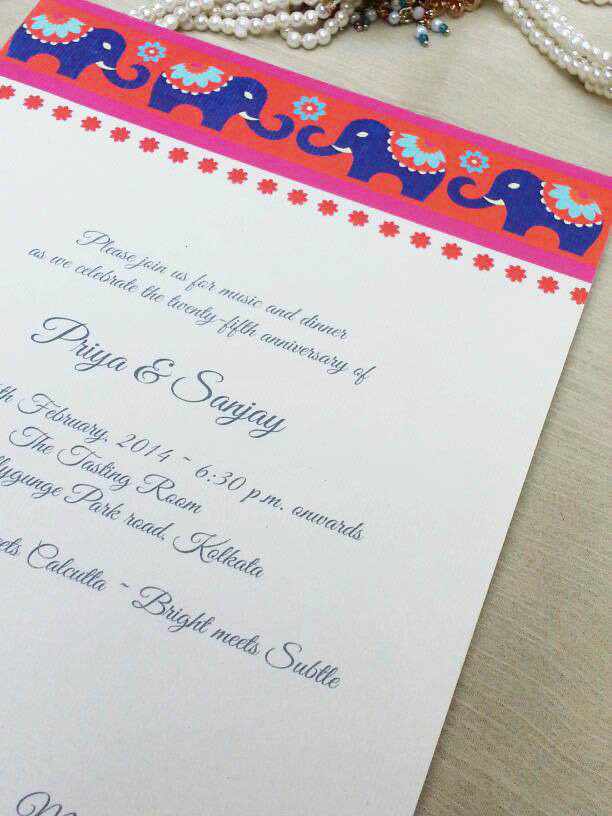 Please join us for music and dinner
as we celebrate the twenty-fifth anniversary of
Priya & Sanjay
th February, 2014 ~ 6:30 p.m. onwards
The Tasting Room
lygunge Park road, Kolkata
eets Calcutta ~ Bright meets Subtle